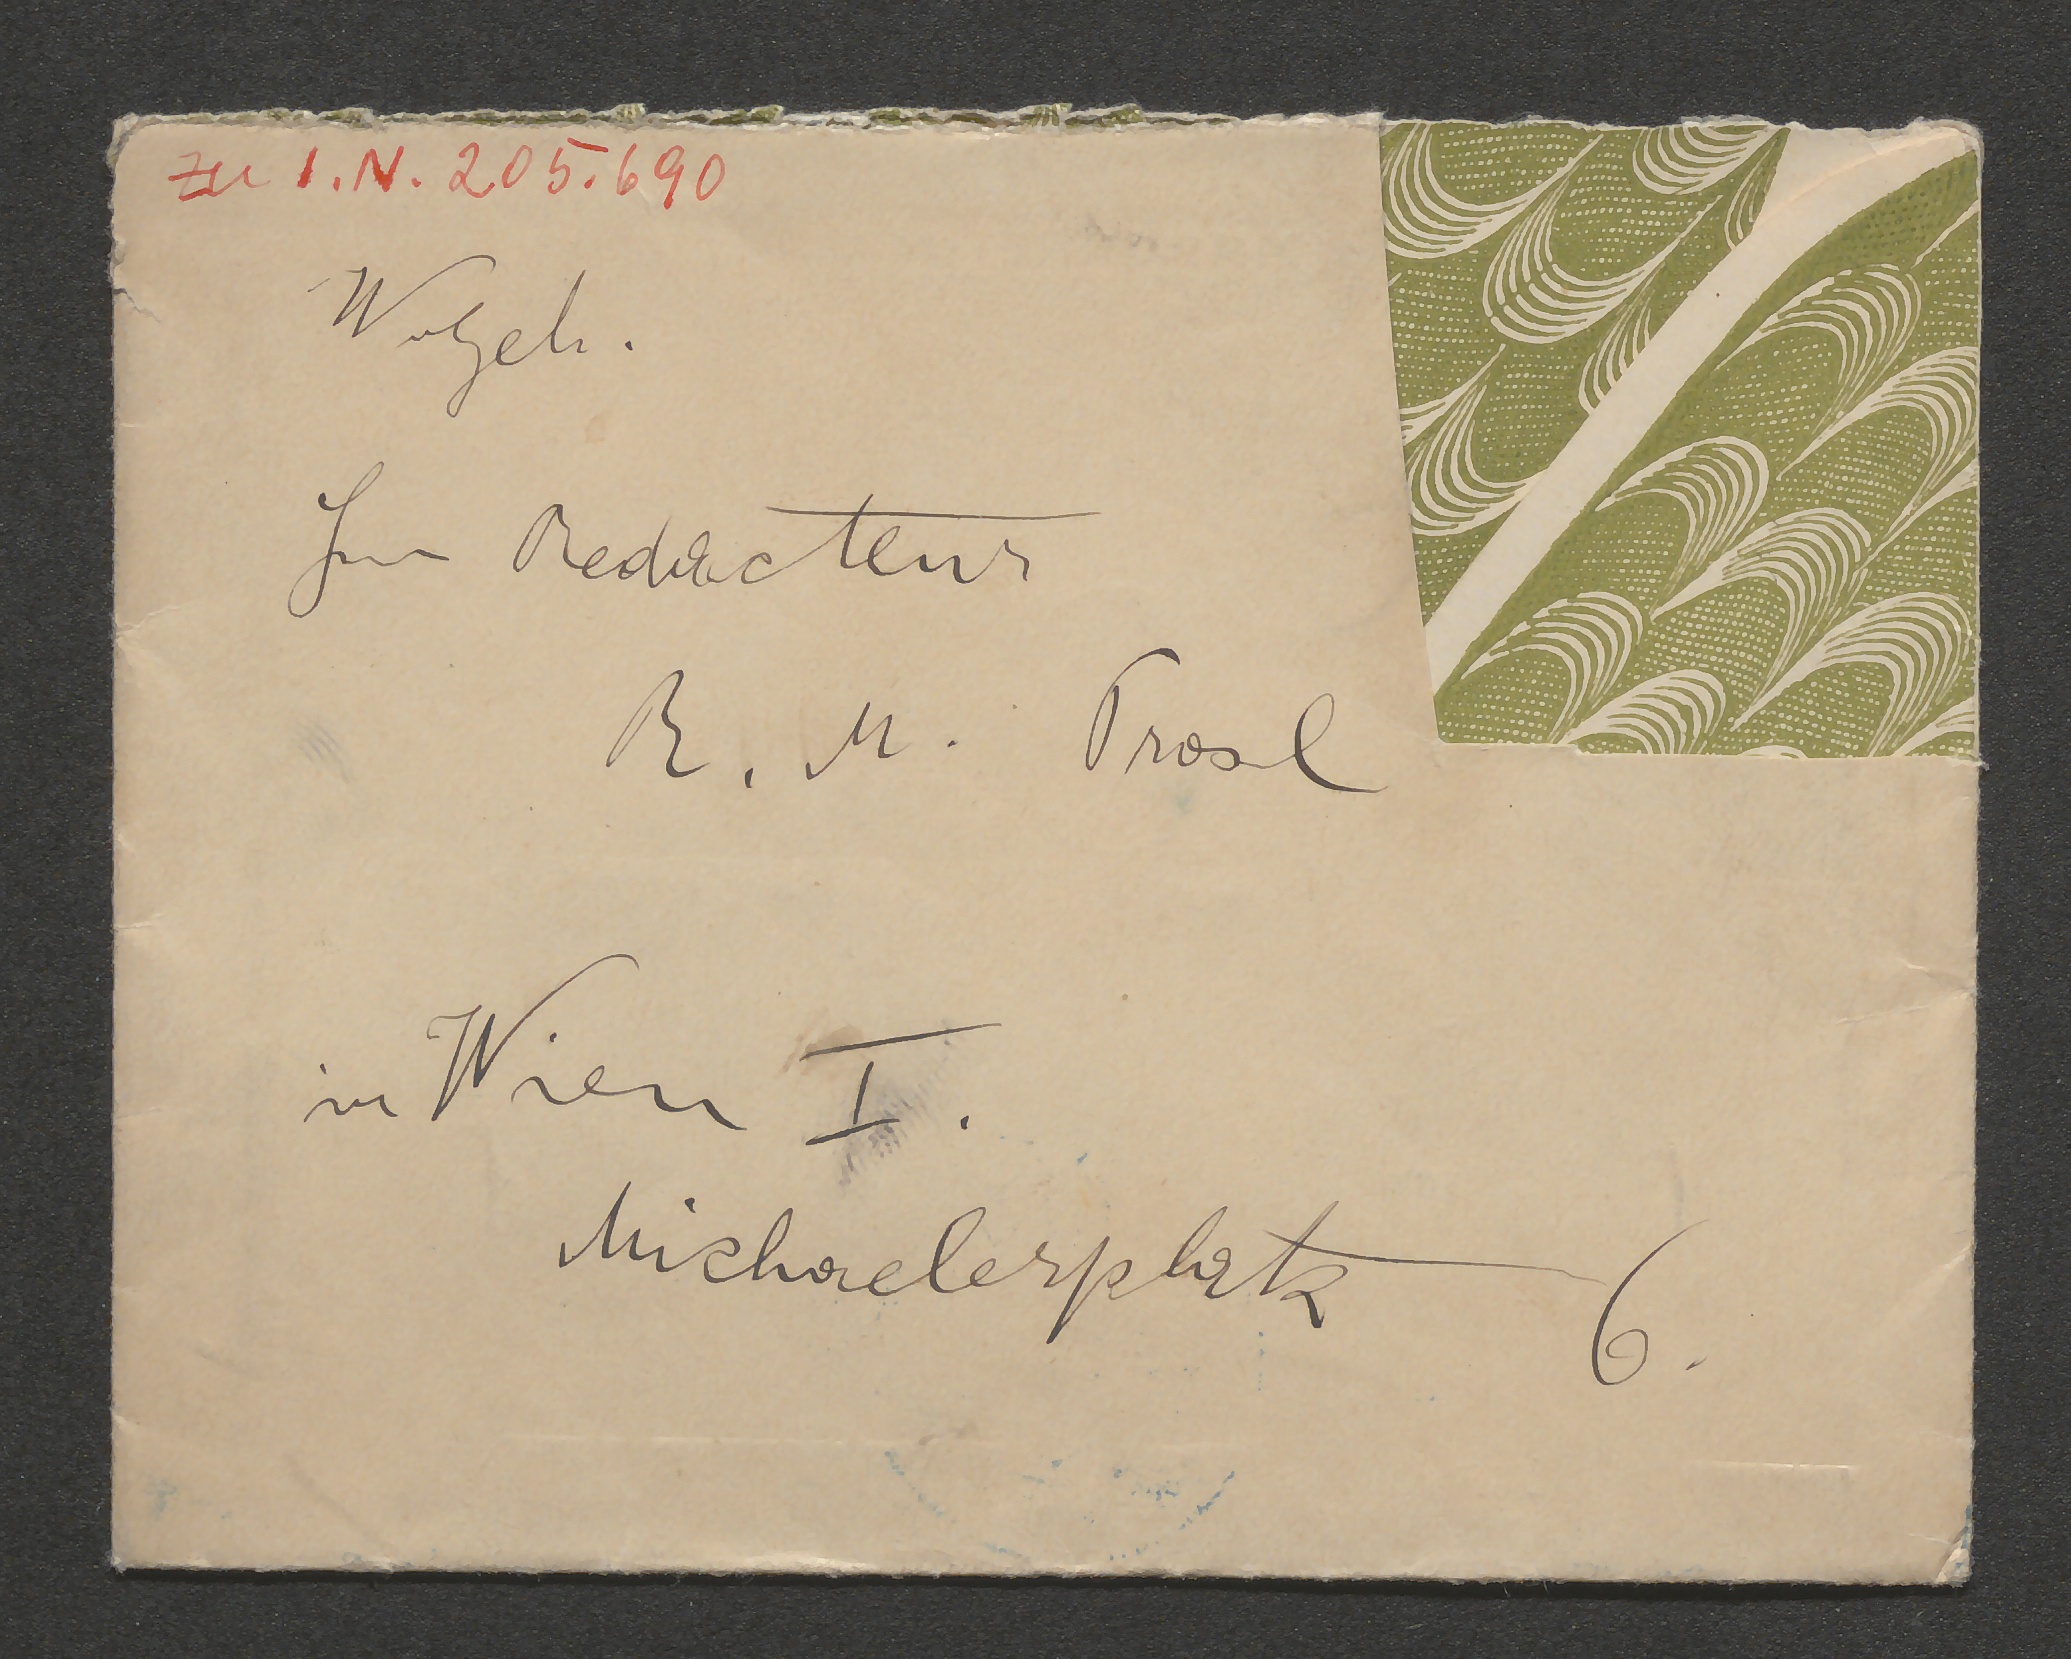 zu I.N. 205.690
Wolgeb.
Hrn Redacteur
R. M. Prosl
in Wien I.
Michaelerplatz 6.